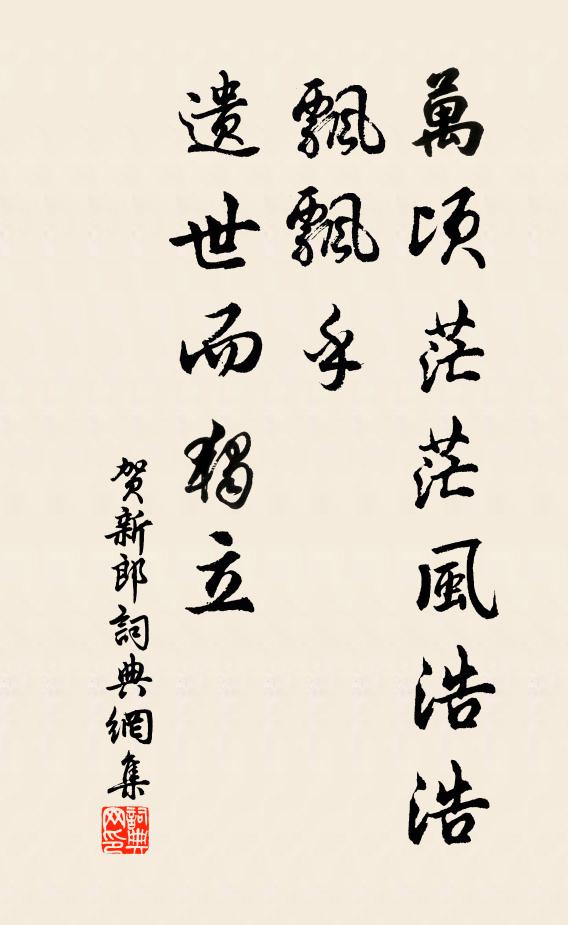 萬頃茫茫風浩浩
飄飄乎
遺世而獨立
贺新郎詞典網集
詞典网印